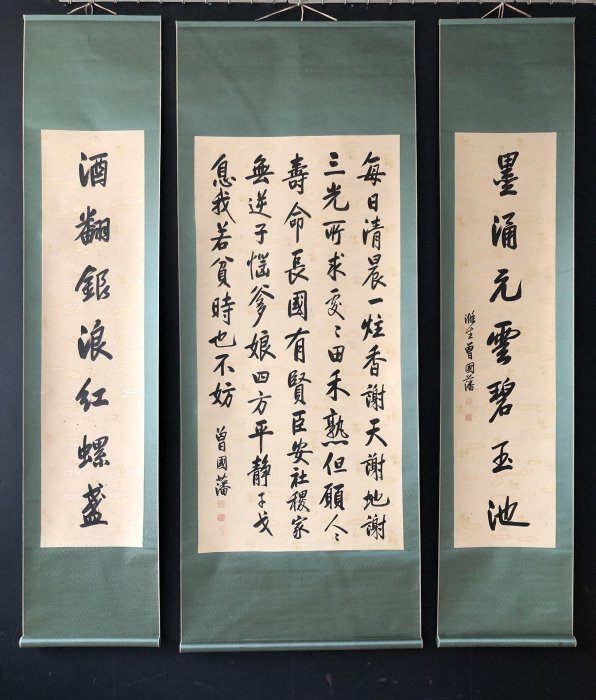 墨涌元雲碧玉池
滌生曾國藩
每日清晨一炷香謝天謝地謝
三光所求处〻田禾熟但願人〻
壽命長國有賢臣安社稷家
無逆子惱爹娘四方平靜干戈
息我若貧時也不妨
曾國藩
酒翻銀浪紅螺盞